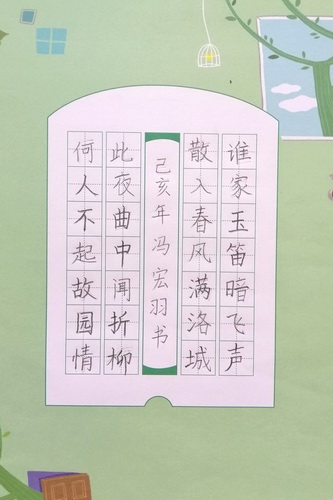 谁家玉笛暗飞声
散入春风满洛城
己亥年冯宏羽书
此夜曲中闻折柳
何人不起故园情